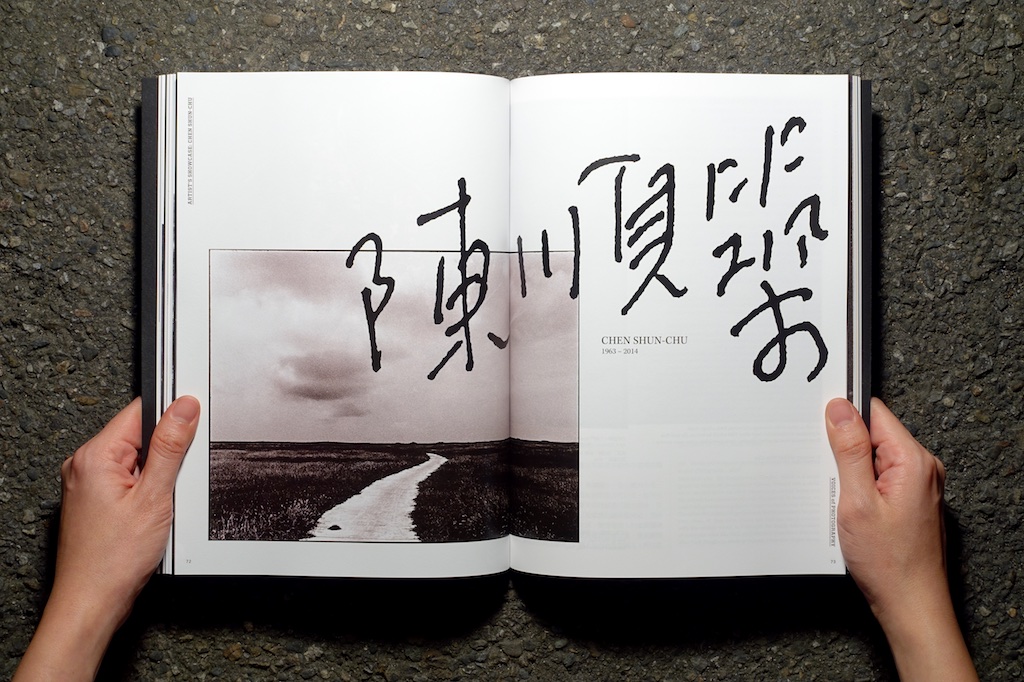 ARTIST'S SHOWCASE: CHEN SHUN-CHU
陳順築
CHEN SHUN-CHU
1963 – 2014
VOICES of PHOTOGRAPHY
72
73